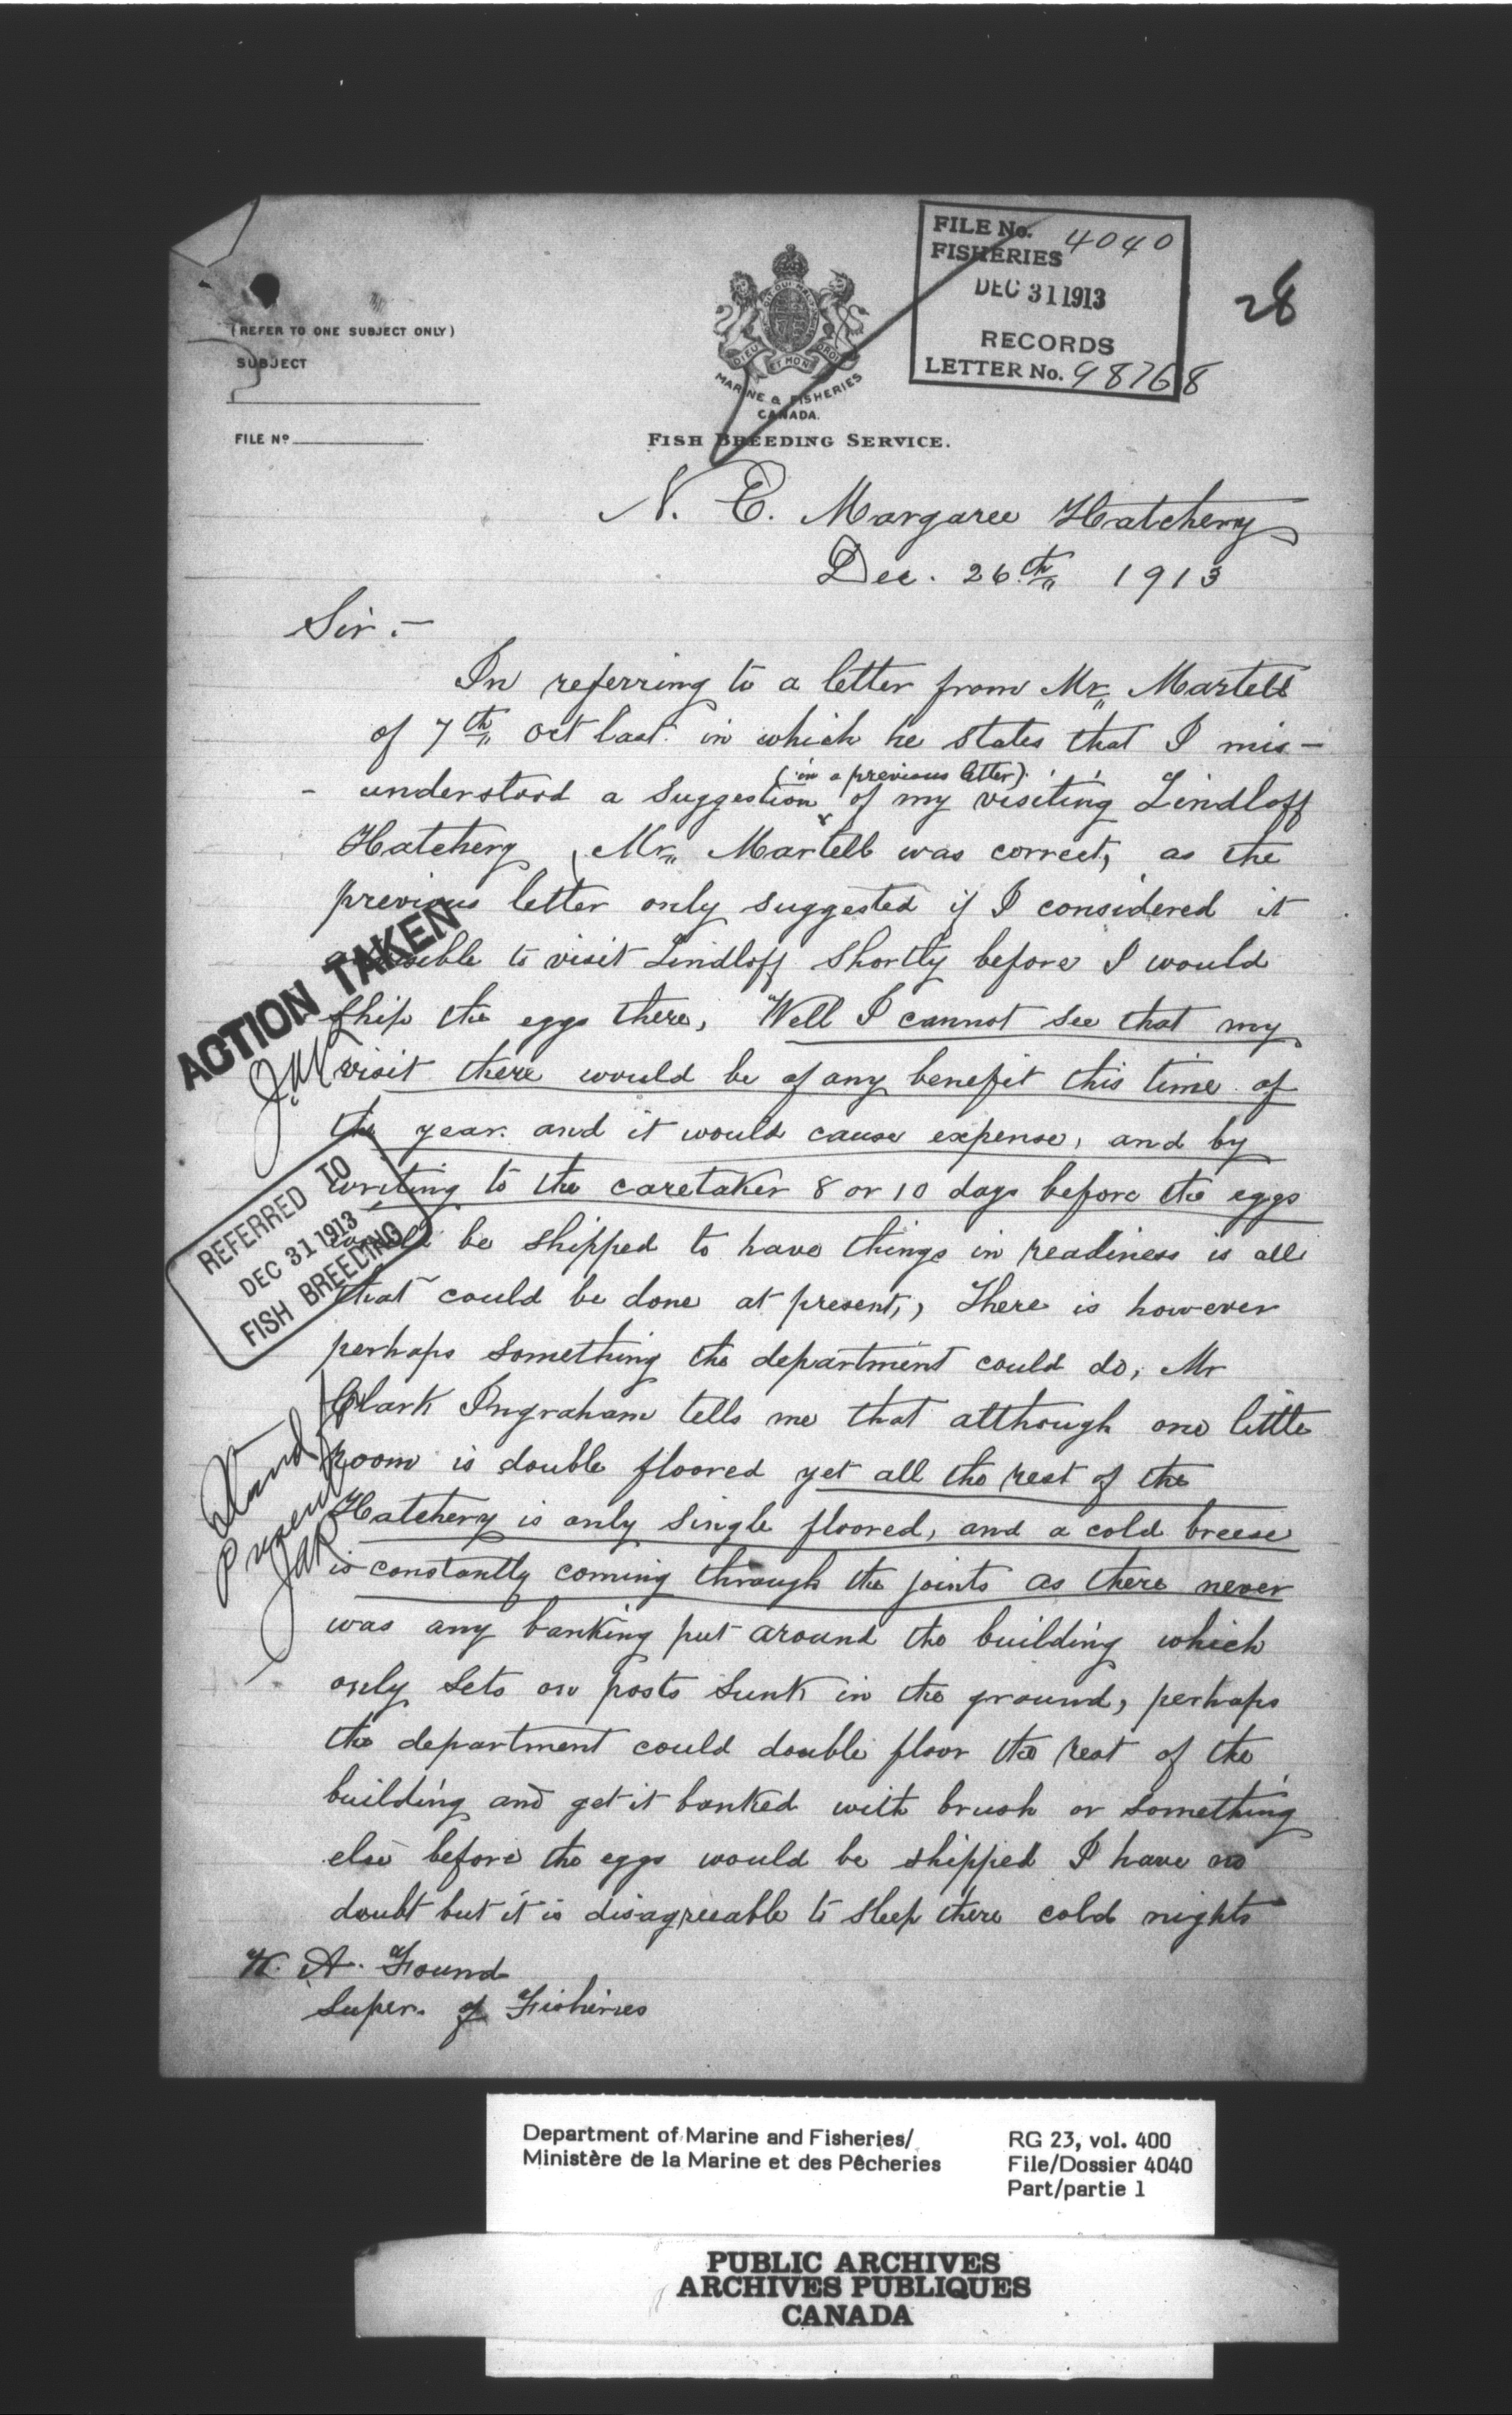 FILE No. 4040
FISHERIES
DEC 31 1913
RECORDS
LETTER No. 98768
28
(REFER TO ONE SUBJECT ONLY)
SUBJECT
FILE Nº
DIEU ET MON DROIT
MARINE & FISHERIES
CANADA.
FISH BREEDING SERVICE.
N. E. Margaree Hatchery
Dec. 26th 1913
Sir :-
In referring to a letter from Mr. Martell
of 7th Oct last in which he states that I mis-
(in a previous letter)
understood a suggestion of my visiting Lindloff
Hatchery, Mr. Martell was correct, as the
previous letter only suggested if I considered it
to visit Lindloff shortly before I would
ship the eggs there, Well I cannot see that my
visit there would be of any benefit this time of
the year and it would cause expense, and by
writing to the caretaker 8 or 10 days before the eggs
would be shipped to have things in readiness is all
that could be done at present, There is however
perhaps something the department could do, Mr
Clark Ingraham tells me that although one little
room is double floored yet all the rest of the
Hatchery is only single floored, and a cold breese
is constantly coming through the joints as there never
was any banking put around the building which
only sets on posts sunk in the ground, perhaps
the department could double floor the rest of the
building and get it banked with brush or something
else before the eggs would be shipped I have no
doubt but it is disagreeable to sleep there cold nights
W. A. Found
Super. of Fisheries
ACTION TAKEN
REFERRED TO
DEC 31 1913
FISH BREEDING
Stand
Present
JAR
Department of Marine and Fisheries/
Ministère de la Marine et des Pêcheries
RG 23, vol. 400
File/Dossier 4040
Part/partie 1
PUBLIC ARCHIVES
ARCHIVES PUBLIQUES
CANADA